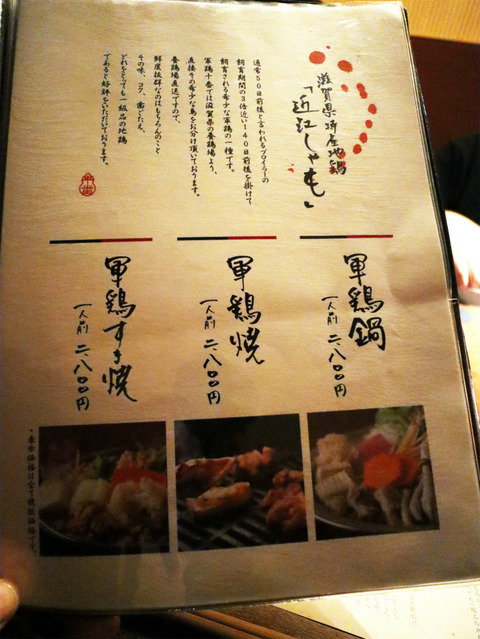 滋賀県特産地鶏
「近江しゃも」
通常50日前後と言われるブロイラーの
飼育期間の3倍近い140日前後を掛けて
飼育される希少な軍鶏の一種です。
軍鶏十番では滋賀県の養鶏場より、
直接その希少な鳥をお分け頂いております。
養鶏場直送ですので、
鮮度抜群なのはもちろんのこと
その味、コク、歯ごたえ、
どれをとっても一級品の地鶏
であると好評をいただいております。
軍鶏鍋
一人前 二、八〇〇円
軍鶏焼
一人前 二、八〇〇円
軍鶏すき焼
一人前 二、八〇〇円
*表示価格は全て税抜価格です。